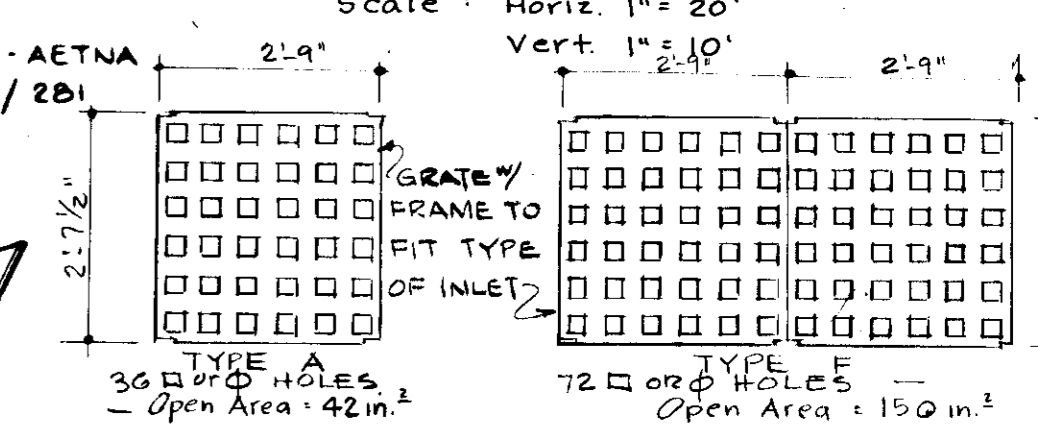 Scale : Horiz. 1" = 20'
Vert. 1" = 10'
- AETNA
/ 281
2'-9"
2'-9"
2'-9"
2'-7½"
GRATE W/
FRAME TO
FIT TYPE
OF INLET
TYPE A
36 □ or Φ HOLES
— Open Area = 42 in.²
TYPE F
72 □ OR Φ HOLES —
Open Area = 150 in.²